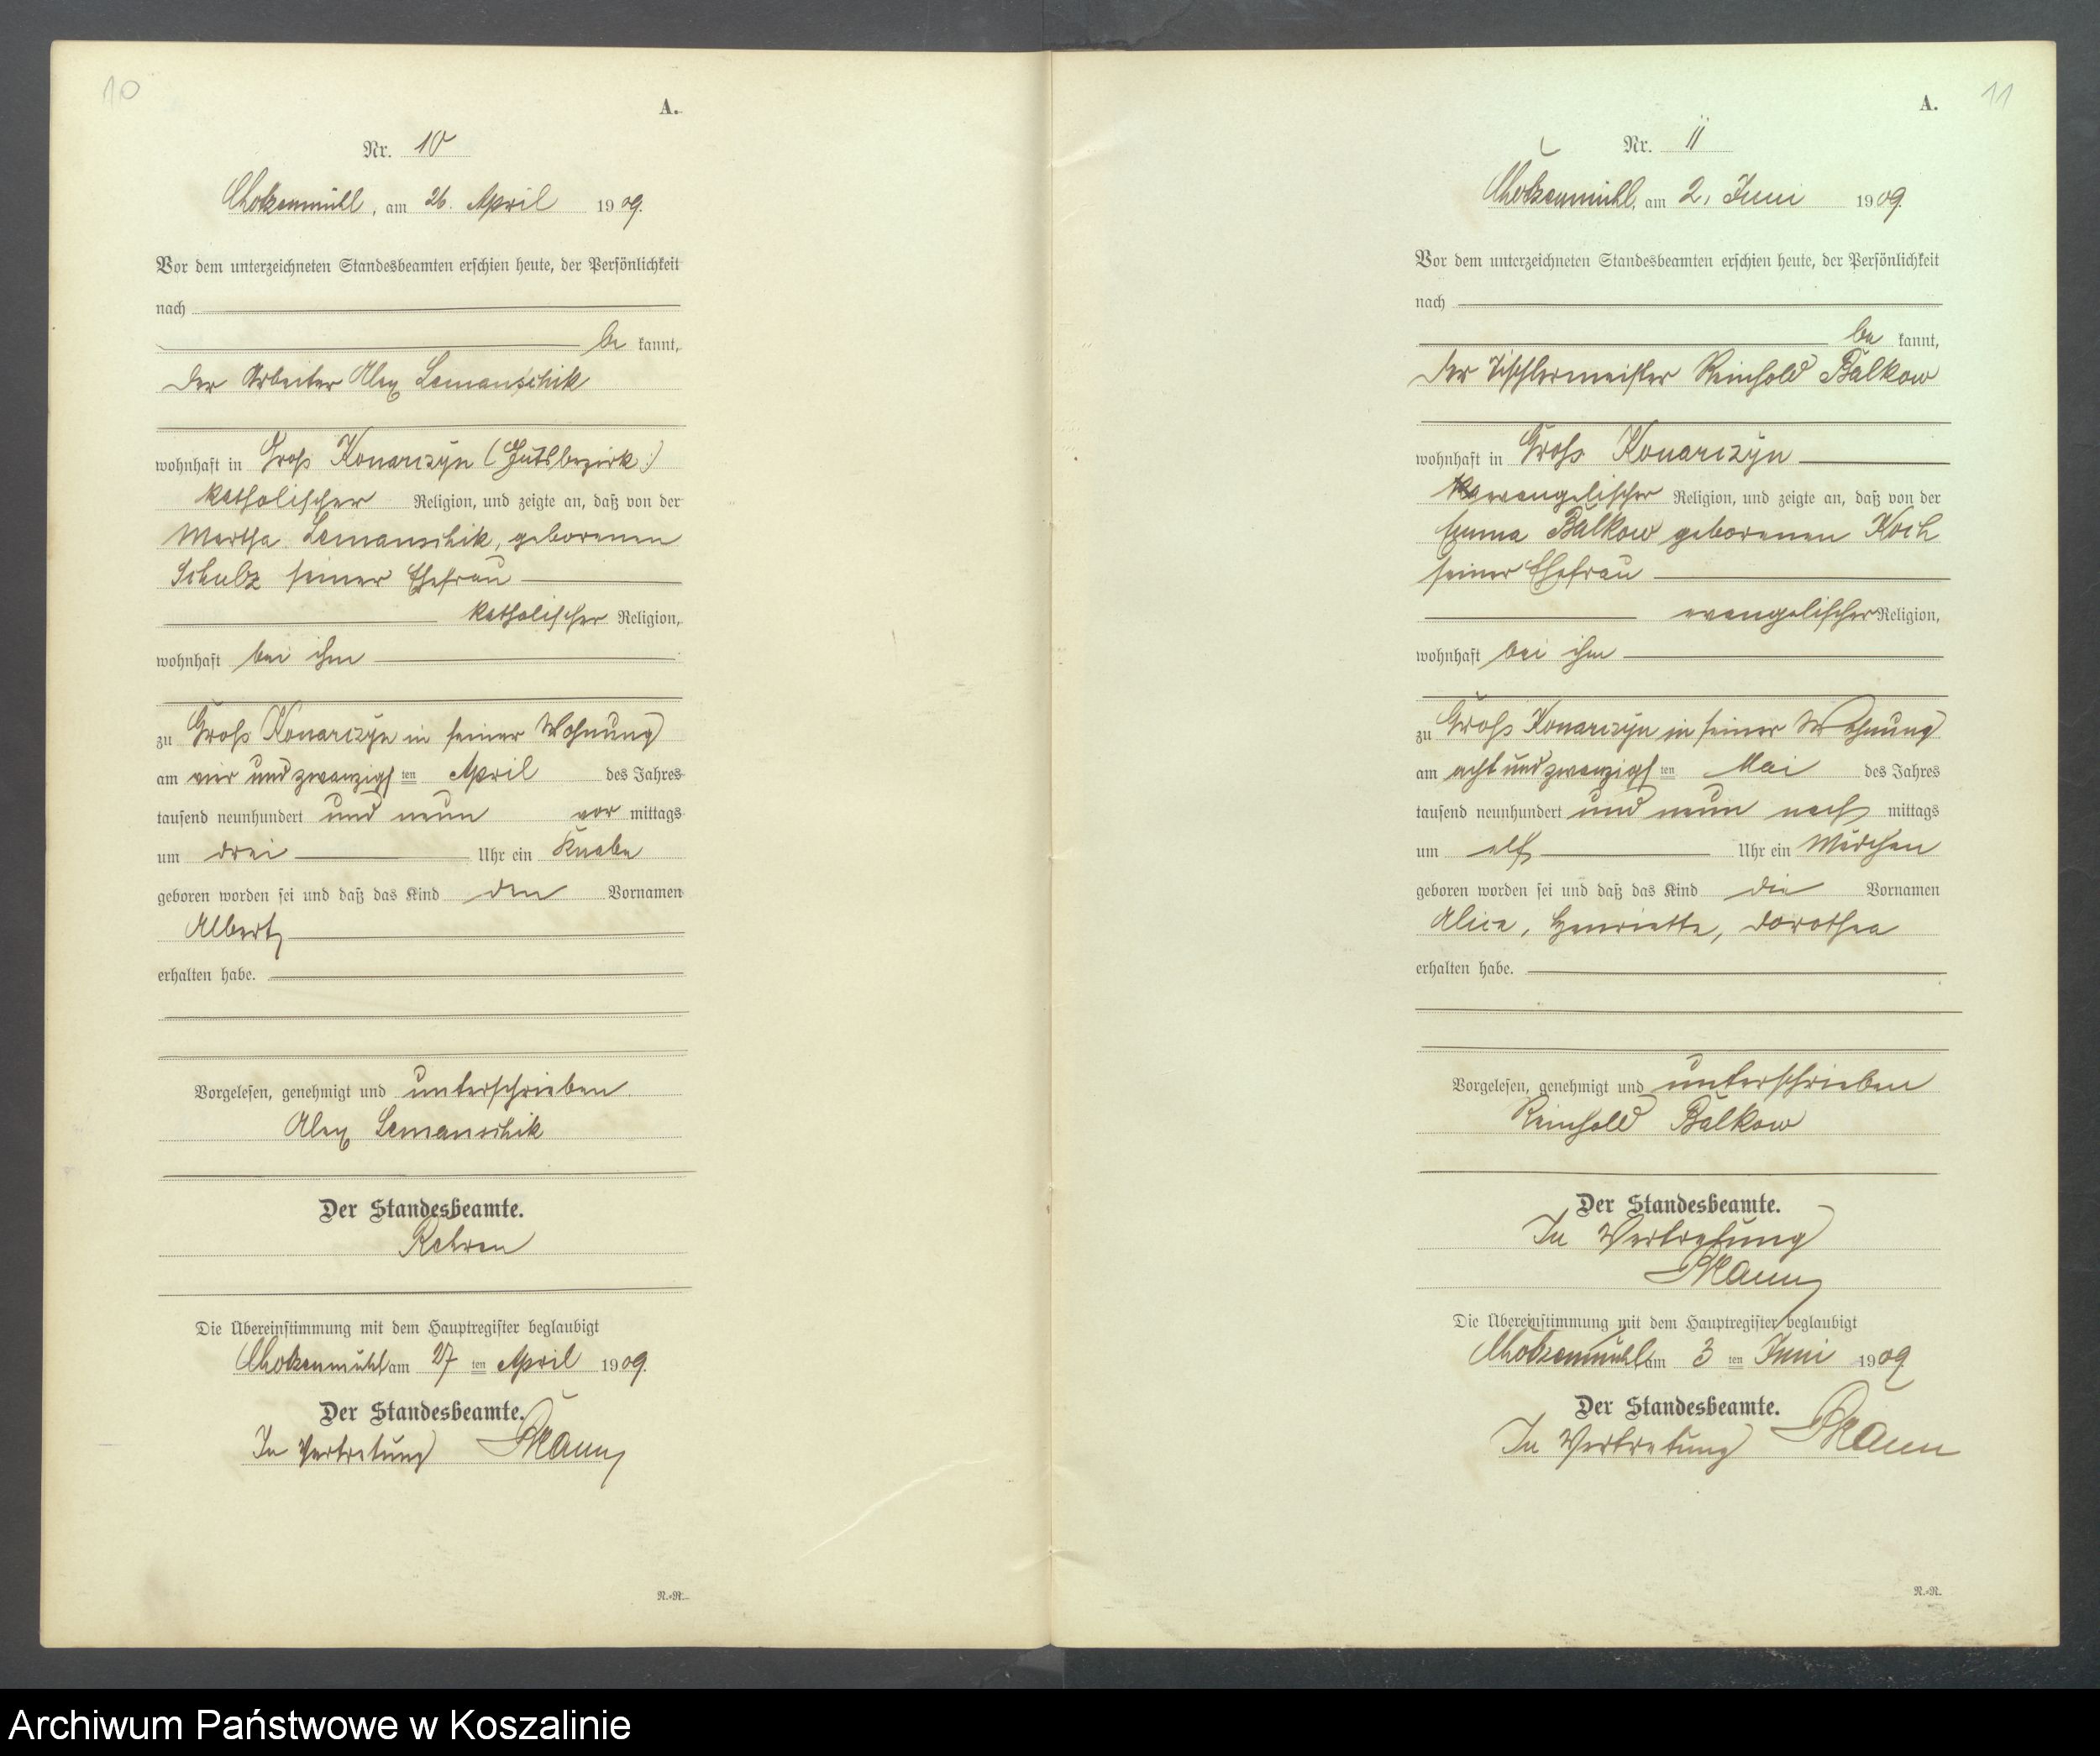 10
A.
Nr. 10
Chotzenmühl, am 26. April 1909.
Vor dem unterzeichneten Standesbeamten erschien heute, der Persönlichkeit
nach
be kannt,
der Arbeiter Alex Lemanschik
wohnhaft in Groß Konarczyn (Gutsbezirk)
katholischer Religion, und zeigte an, daß von der
Martha Lemanschik, geborenen
Schulz seiner Ehefrau
katholischer Religion,
wohnhaft bei ihm
zu Groß Konarczyn in seiner Wohnung
am vier und zwanzigsten April des Jahres
tausend neunhundert und neun vor mittags
um drei Uhr ein Knabe
geboren worden sei und daß das Kind den Vornamen
Albert
erhalten habe.
Vorgelesen, genehmigt und unterschrieben.
Alex Lemanschik
Der Standesbeamte.
Die Übereinstimmung mit dem Hauptregister beglaubigt
Chotzenmühl am 27 ten April 1909.
Der Standesbeamte.
In Vertretung
N.=N.
11
A.
Nr. 11
Chotzenmühl, am 2. Juni 1909.
Vor dem unterzeichneten Standesbeamten erschien heute, der Persönlichkeit
nach
be kannt,
der Tischlermeister Reinhold Balkow
wohnhaft in Groß Konarczyn
evangelischer Religion, und zeigte an, daß von der
Emma Balkow geborenen Koch
seiner Ehefrau
evangelischer Religion,
wohnhaft bei ihm
zu Groß Konarczyn in seiner Wohnung
am acht und zwanzigsten Mai des Jahres
tausend neunhundert und neun nach mittags
um elf Uhr ein Mädchen
geboren worden sei und daß das Kind die Vornamen
Alice, Henriette, Dorothea
erhalten habe.
Vorgelesen, genehmigt und unterschrieben
Reinhold Balkow
Der Standesbeamte.
In Vertretung
Die Übereinstimmung mit dem Hauptregister beglaubigt
Chotzenmühl am 3 ten Juni 1909
Der Standesbeamte.
In Vertretung
N.=N.
Archiwum Państwowe w Koszalinie